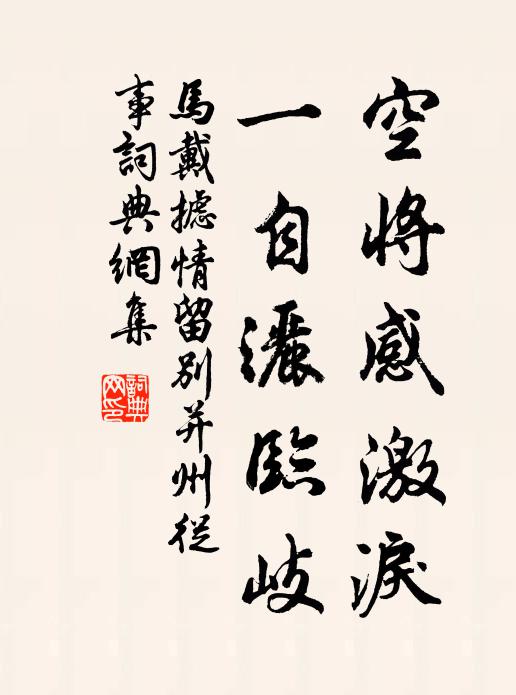 空將感激淚
一自灑臨岐
馬戴攄情留別并州從
事詞典網集
詞典
网印